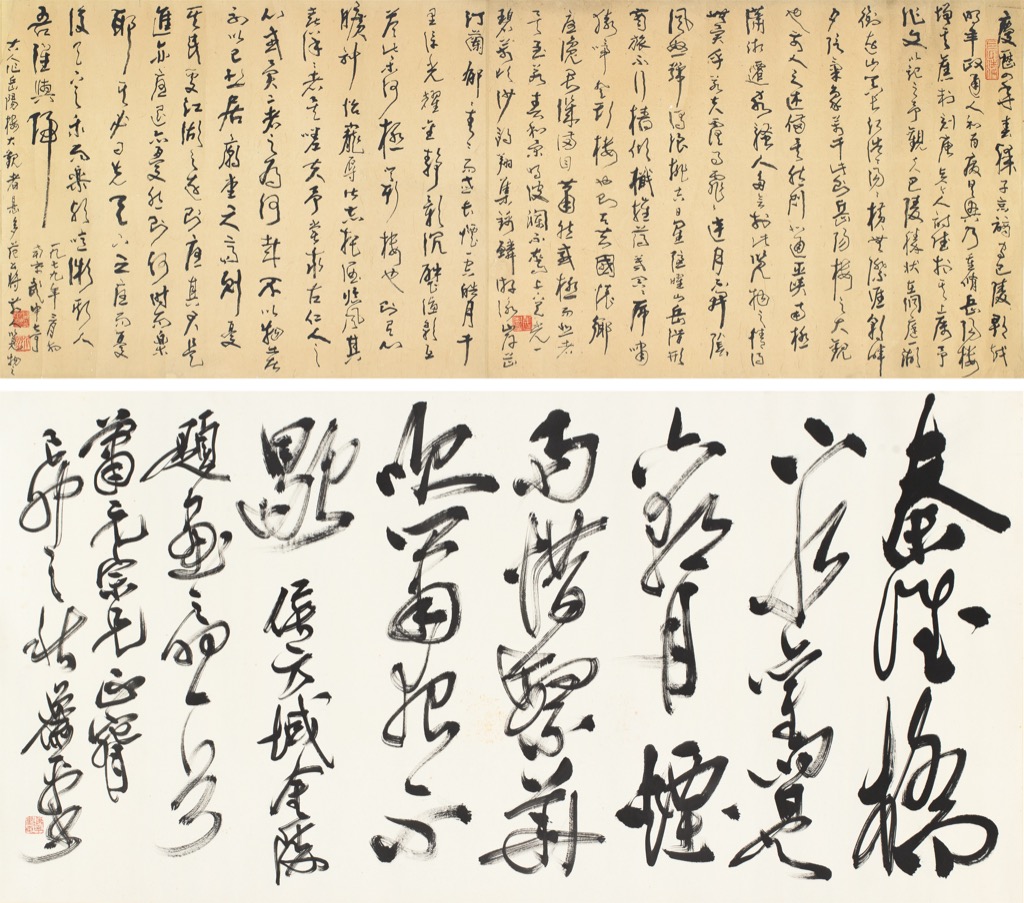 慶曆四年春滕子京謫守巴陵郡越
明年政通人和百廢具興乃重修岳陽樓
增其舊制刻唐賢今人詩賦於其上屬予
作文以記之予觀夫巴陵勝狀在洞庭一湖
銜遠山吞長江浩浩湯湯橫無際涯朝暉
夕陰氣象萬千此則岳陽樓之大觀
也前人之述備矣然則北通巫峽南極
瀟湘遷客騷人多會於此覽物之情得
無異乎若夫霪雨霏霏連月不開陰
風怒號濁浪排空日星隱曜山岳潛形
商旅不行檣傾楫摧薄暮冥冥虎嘯
猿啼登斯樓也則有去國懷鄉
憂讒畏譏滿目蕭然感極而悲者
矣至若春和景明波瀾不驚上下天光一
碧萬頃沙鷗翔集錦鱗游泳岸芷
汀蘭郁郁青青而或長煙一空皓月千
里浮光耀金靜影沉璧漁歌互
答此樂何極登斯樓也則有心
曠神怡寵辱皆忘把酒臨風其
喜洋洋者矣嗟夫予嘗求古仁人之
心或異二者之為何哉不以物喜
不以己悲居廟堂之高則憂
其民處江湖之遠則憂其君是
進亦憂退亦憂然則何時而樂
耶其必曰先天下之憂而憂
後天下之樂而樂歟噫微斯人
吾誰與歸
一九七九年
秦淮橋
下水舊是
六朝月煙
雨惜繁華
吹簫夜不
歇 侯方域金陵
題畫之詞一首
蕭元宗兄正
己卯之秋蕭平書